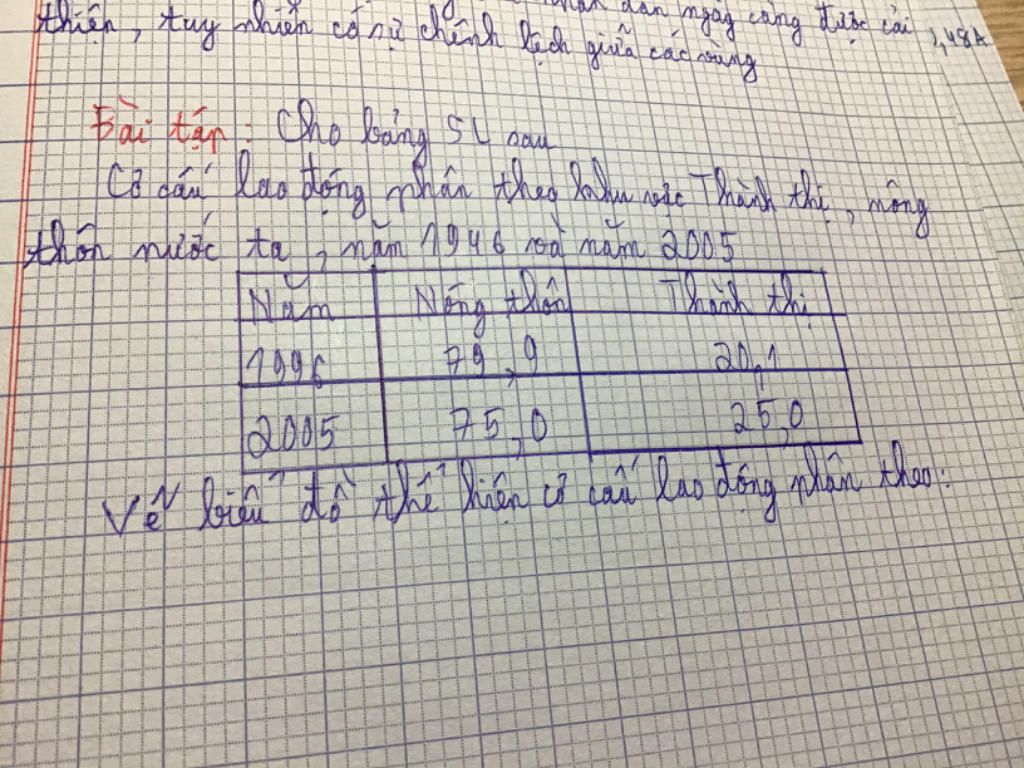 dân ngày càng được cải
thiện, tuy nhiên có sự chênh lệch giữa các vùng
Bài tập: Cho bảng SL sau
Cơ cấu lao động phân theo khu vực Thành thị, nông
thôn nước ta, năm 1946 và năm 2005
Năm Nông thôn Thành thị
1996 79,9 20,1
2005 75,0 25,0
Vẽ biểu đồ thể hiện cơ cấu lao động phân theo: